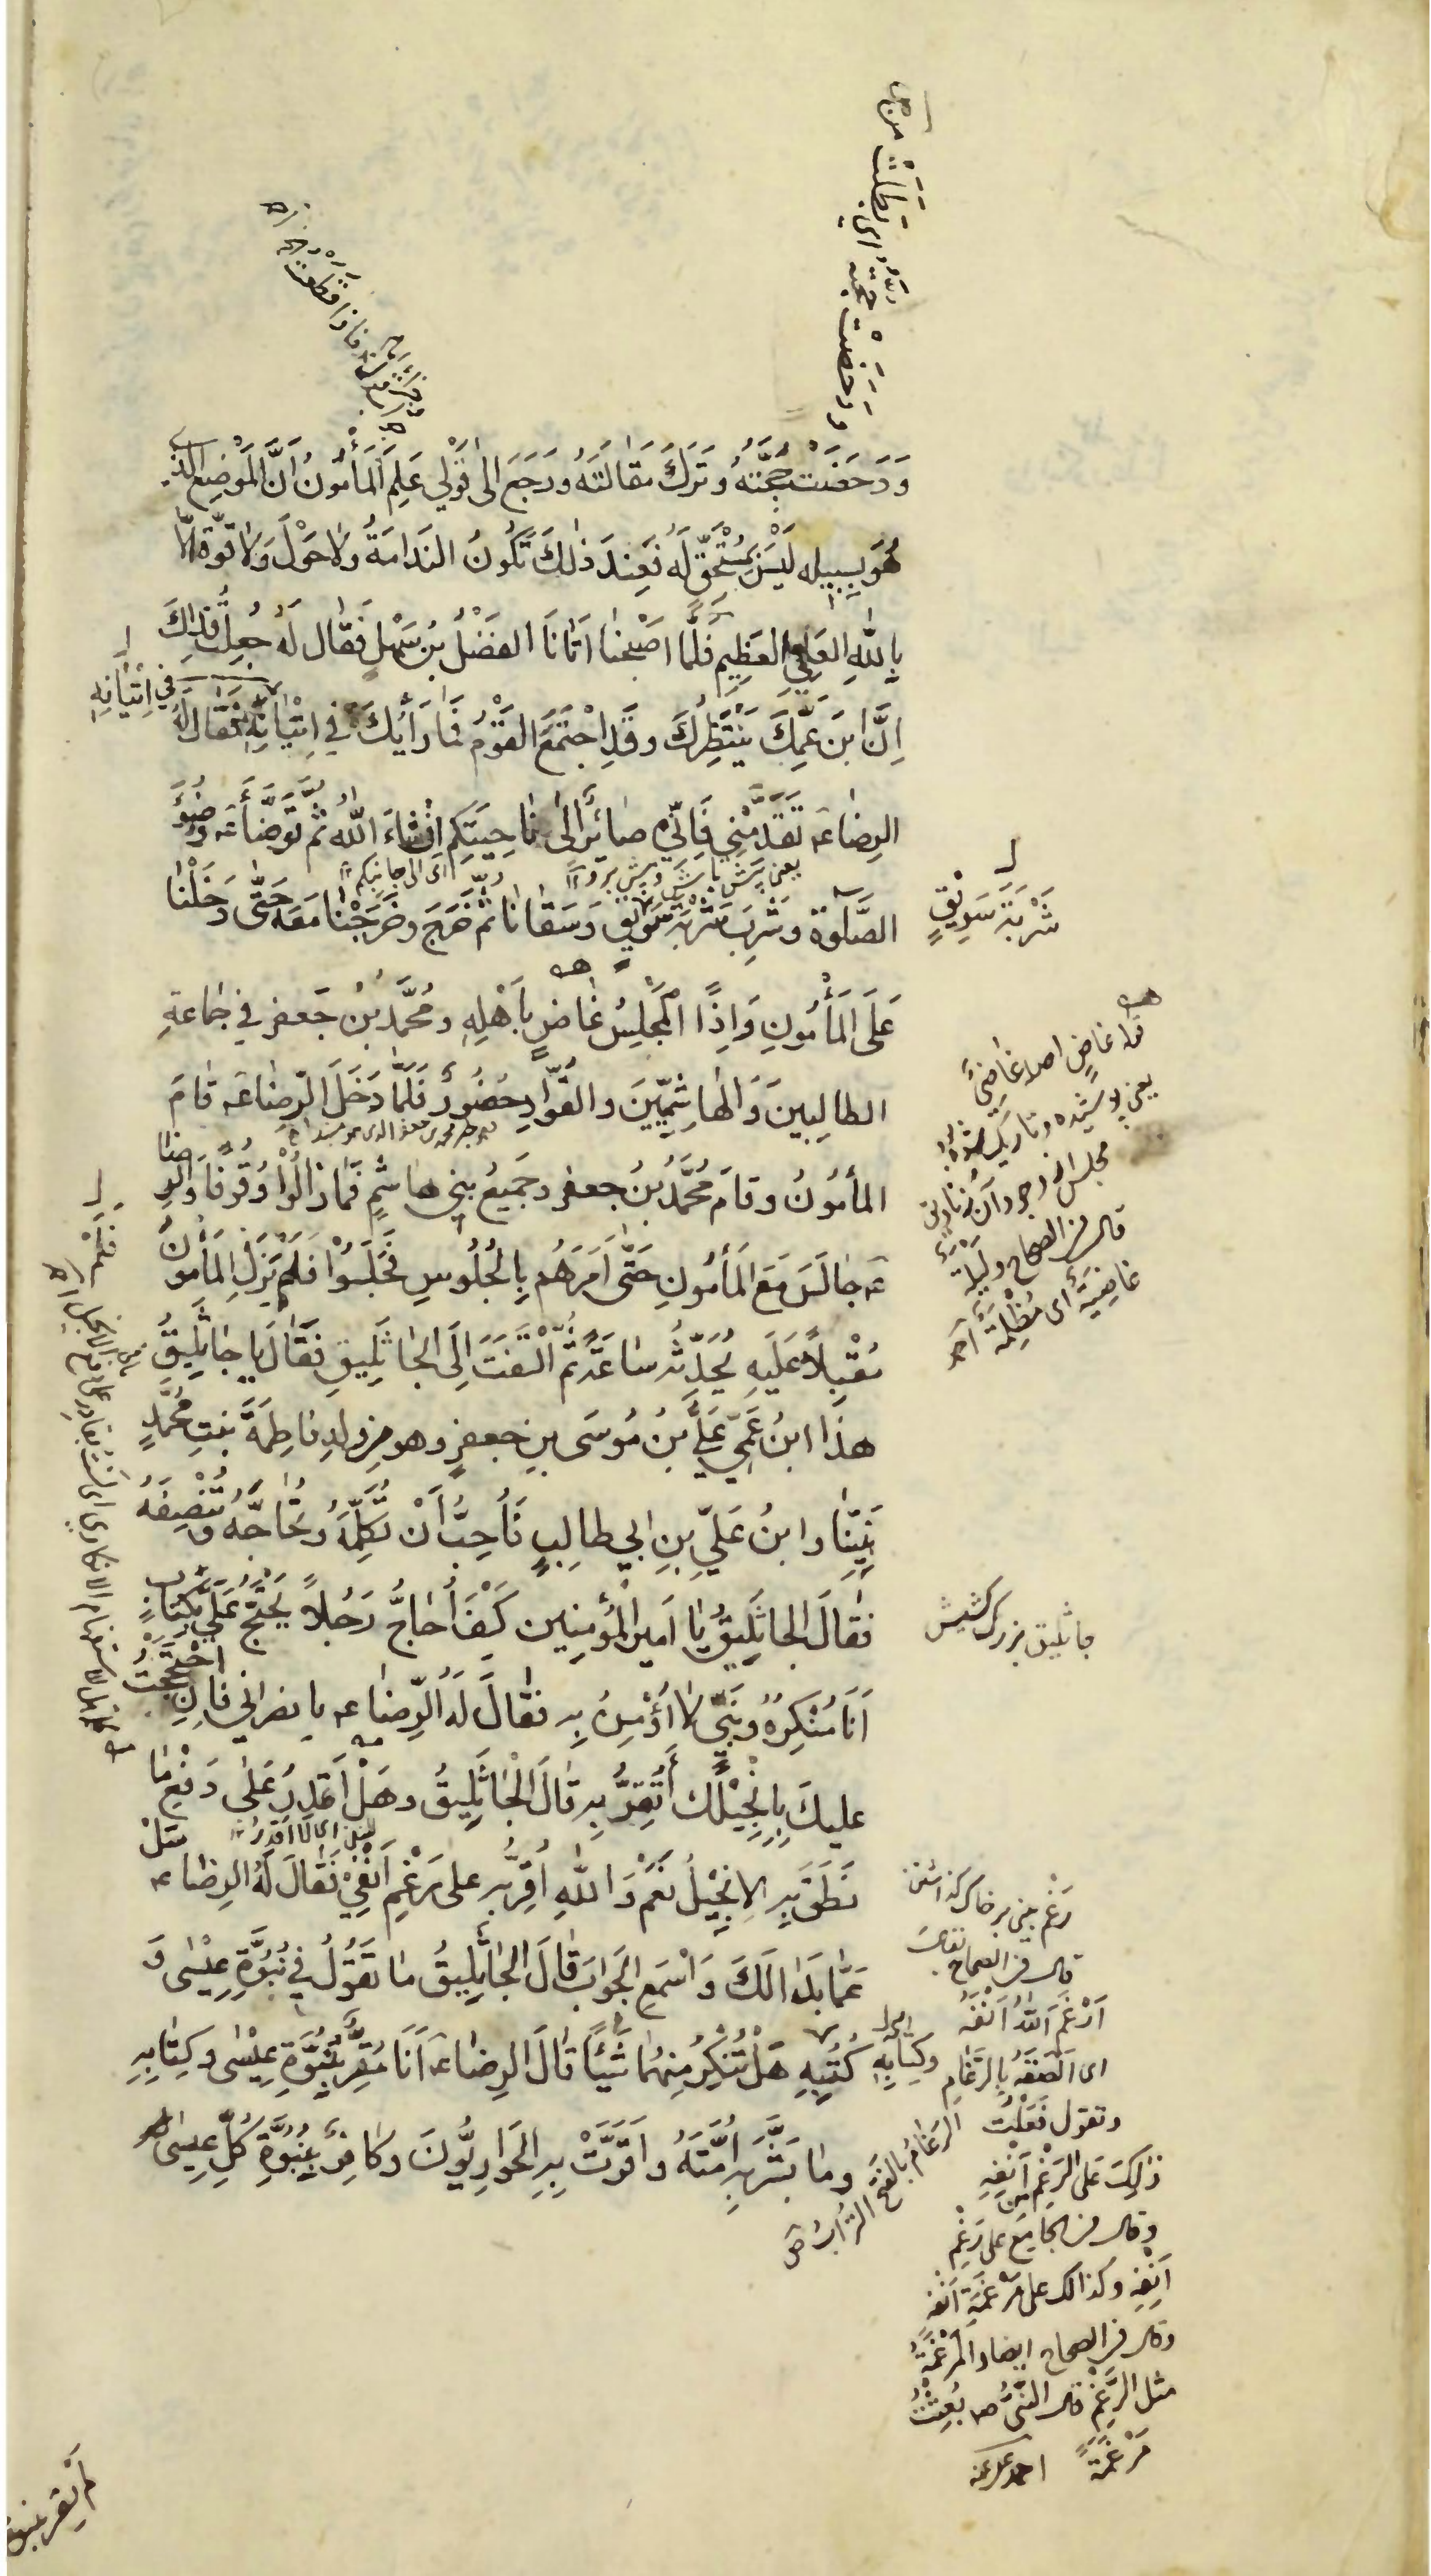 وَدَحَضَتْ حُجَّتُهُ وَتَرَكَ مَقَالَتَهُ وَرَجَعَ اِلىٰ قَوْلِي عَلِمَ الْمَأْمُونُ اَنَّ الْمَوْضِعَ الَّذِي
هُوَ بِسَبِيلِهِ لَيْسَ بِمُسْتَحَقٍّ لَهُ فَعِنْدَ ذٰلِكَ تَكُونُ النَدَامَةُ وَلاحَوْلَ وَلا قُوَّةَ اِلّا
بِاللّٰهِ العَلِيِّ العَظِيمِ فَلَمَّا اَصْبَحْنا اَتانَا الفَضْلُ بْنُ سَهْلٍ فَقالَ لَهُ جُعِلْتُ فِدَاكَ
اِنَّ ابْنَ عَمِّكَ يَنْتَظِرُكَ وَقَدِ اجْتَمَعَ القَوْمُ فَمَا رَأْيُكَ فِي اِتْيَانِهِ فَقَالَ لَهُ
الرِضَا عَ تَقَدَّمْنِي فَاِنِّي صَائِرٌ اِلىٰ نَاحِيَتِكُم اِنْشَاءَ اللّٰهُ ثُمَّ تَوَضَّأَ عَ وُضُوءَ
الصَّلٰوةِ وَشَرِبَ شَرْبَةَ سَوِيقٍ وَسَقَانَا ثُمَّ خَرَجَ وَخَرَجْنَا مَعَهُ حَتّٰى دَخَلْنَا
عَلَى الْمَأْمُونِ وَاِذَا الْمَجْلِسُ غَاضٍ بِاَهْلِهِ وَمُحَمَّدُ بْنُ جَعفَرٍ فِي جَمَاعَةِ
الطالِبِينَ وَالْهَاشِمِيِّينَ وَالقُوَّادِ حُضُورٌ فَلَمَّا دَخَلَ الرِّضَا عَ قَامَ
المأمُونُ وَقَامَ مُحَمَّدُ بْنُ جعفرٍ وَجَمِيعُ بَنِي هاشِمٍ فَمَا زَالُوْا وُقُوفًا وَالرِضَا
عَ جالَسَ مَعَ الْمَأمُونِ حَتّٰى اَمَرَهُم بِالْجُلُوسِ فَجَلَسُوْا فَلَمْ يَزَلِ المَأْمُونُ
مُقْبِلاً عَلَيهِ يُحَدِّثُهُ سَاعَةً ثُمَّ الْتَفَتَ اِلَى الجَاثَلِيقِ فَقَالَ يا جَاثَلِيقُ
هذَا ابنُ عَمِّي عَلِيُّ بْنُ مُوسَى بنِ جَعفرٍ وهو مِن وَلدِ فَاطِمَةَ بنتِ مُحَمَّدٍ
نَبِيِّنَا وابنُ عَلِيِّ بنِ ابي طالِبٍ فَأُحِبُّ اَنْ تُكَلِّمَهُ وَتُحَاجَّهُ وَتُنْصِفَهُ
فَقَالَ الجَاثَلِيقُ يَا اَمِيرَ الْمُؤمِنِين كَيْفَ اُحَاجُّ رَجُلاً يَحْتَجُّ عَلَيَّ بِكِتَابٍ
اَنَا مُنْكِرُهُ وَنَبِيٍّ لا اُؤْمِنُ بِهِ فَقَالَ لَهُ الرِّضَا عَ يا نصرانِي فَاِنِ احْتَجَجْتُ
عليكَ بِاِنْجِيْلِكَ أَتُقِرُّ بِهِ قَالَ الْجَاثَلِيقُ وَهَلْ اَقْدِرُ عَلىٰ دَفْعِ مَا
نَطَقَ بِهِ الاِنْجِيْلُ نَعَمْ وَاللّٰهِ اُقِرُّ بِهِ على رَغْمِ اَنْفِيْ فَقَالَ لَهُ الرِضَا عَ سَلْ
عَمَّا بَدَا لَكَ وَاسْمَعِ الجَوَابَ قَالَ الجَاثَلِيقُ مَا تَقُوْلُ فِي نُبُوَّةِ عِيْسٰى وَ
كُتُبِهِ هَلْ تُنْكِرُ مِنهُمَا شَيْئًا قَالَ الرِضَا عَ اَنَا مُقِرٌّ بِنُبُوَّةِ عِيْسٰى وكِتَابِهِ
وَمَا بَشَّرَ بِهِ اُمَّتَهُ وَاَقَرَّتْ بِهِ الحَوَارِيُّونَ وَكافِرٌ بِنُبُوَّةِ كُلِّ عِيسٰى
وَدَحَضَتْ حُجَّتُهُ اي بَطَلَتْ من ص
فِي اِتْيَانِهِ
شَرْبَةَ سَوِيْقٍ
اى الى جانبكم
قوله غاضٍ اصله غاضِيٌ
يعنى پوشيده وتاريك
قال في الصحاح وليلة
غاضِيَةٌ اى مُظْلِمَةٌ احمد
جاثليق بزرك كشيش
اى لا اقدر
رَغْم بينى بر خاك
قال في الصحاح
اَرْغَمَ اللّٰهُ اَنْفَهُ
اى اَلْصَقَهُ بِالرَّغَامِ
وتقول فَعَلْتُ
ذٰلِكَ عَلى الرَغْمِ مِن اَنْفِهِ
الرَغَامُ بالفتح التُرَابُ ص
وقال في الجامع على رَغْمِ
اَنْفِهِ وكذالك على مَرْغَمَةِ اَنْفِهِ
وقال في الصحاح ايضا والمَرْغَمَةُ
مثل الرَّغْمِ قال النَّبِيُّ ص بُعِثْتُ
مَرْغَمَةً احمد
وكِتَابِهِ
لم يقر بنبوة